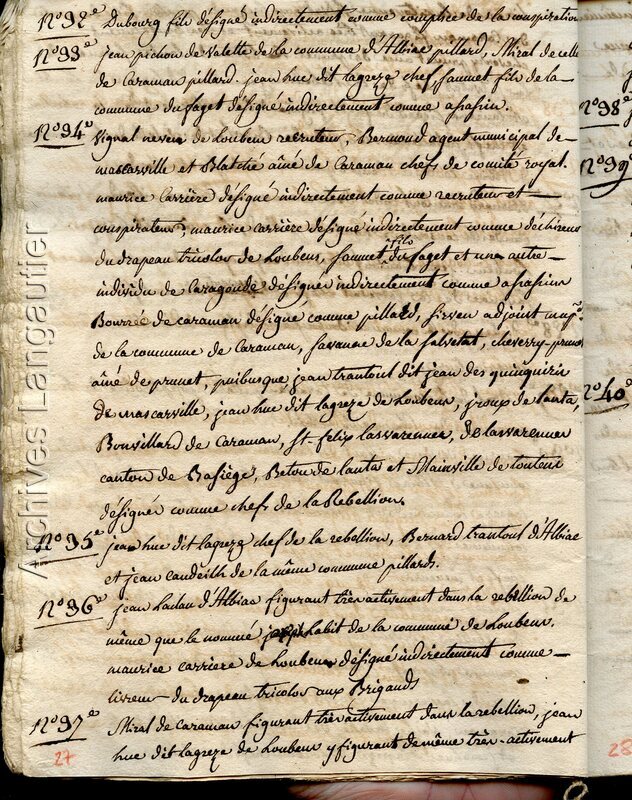 N° 92e Dubourg fils désigné indirectement comme complice de la conspiration
N° 93e jean pichon de valette de la commune d'Albiac pillard, Miral de celle
de Caraman pillard. jean huc dit lagreze chef, saunet fils de la
commune du faget désigné indirectement comme assassin.
N° 94e Vignal neveu de Loubens recruteur, Bermond agent municipal de
mascarville et Blatché aîné de Caraman chefs de comité royal.
maurice Carrière désigné indirectement comme recruteur et
conspirateur; maurice carrière désigné indirectement comme déchireur
du drapeau tricolor de Loubens, saunet fils du faget et un autre
individu de Caragoude désigner indirectement comme assassins
Bourrée de caraman désigné comme pillard, sirven adjoint mup.
de la commune de Caraman, favanne de la falvetat, cheverry-prunet
aîné de prunet, puibusque jean trantoul dit jean des quinquiris
de mascarville, jean huc dit lagreze de Loubens, jroux de lanta,
Bonvillard de Caraman, St-felix lassvarenner, de lassvarenner
canton de Basiège, Betou de lanta et Mainville de toutens
désigner comme chefs de la Rebellion.
N° 95e jean huc dit lagreze chef de la rebellion, Bernard trantoul d'Albiac
et jean caudeilh de la même commune pillards.
N° 96e jean Ladau d'Albiac figurant très activement dans la rebellion de
même que le nommé habit de la commune de Loubens.
maurice carriere de Loubens désigné indirectement comme
livreur du drapeau tricolor aux Brigands
N° 97e Miral de Caraman figurant très activement dans la rebellion, jean
huc dit lagreze de Loubens y figurant de même très-activement
27
N° 98e
N° 99
N° 40
28
Archives Langautier